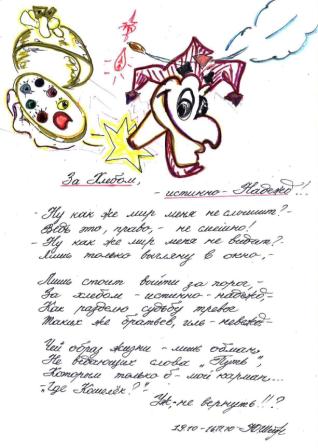 За Хлебом,
- истинно - Надежд!!!
- Ну как же мир меня не слышит?-
Ведь это, право, - не смешно!
- Ну как же мир меня не видит?-
Лишь только выгляну в окно,-
Лишь стоит выйти за порог,-
За хлебом - истинно - надежд,-
Как разделю судьбу тревог
Таких же братьев, иль - невежд.-
Чей образ жизни - лишь обман,
Не ведающих слова "Путь",
Которым только б - мой карман...
- "Где Кошелёк?"-
Уж - не вернуть!!!?